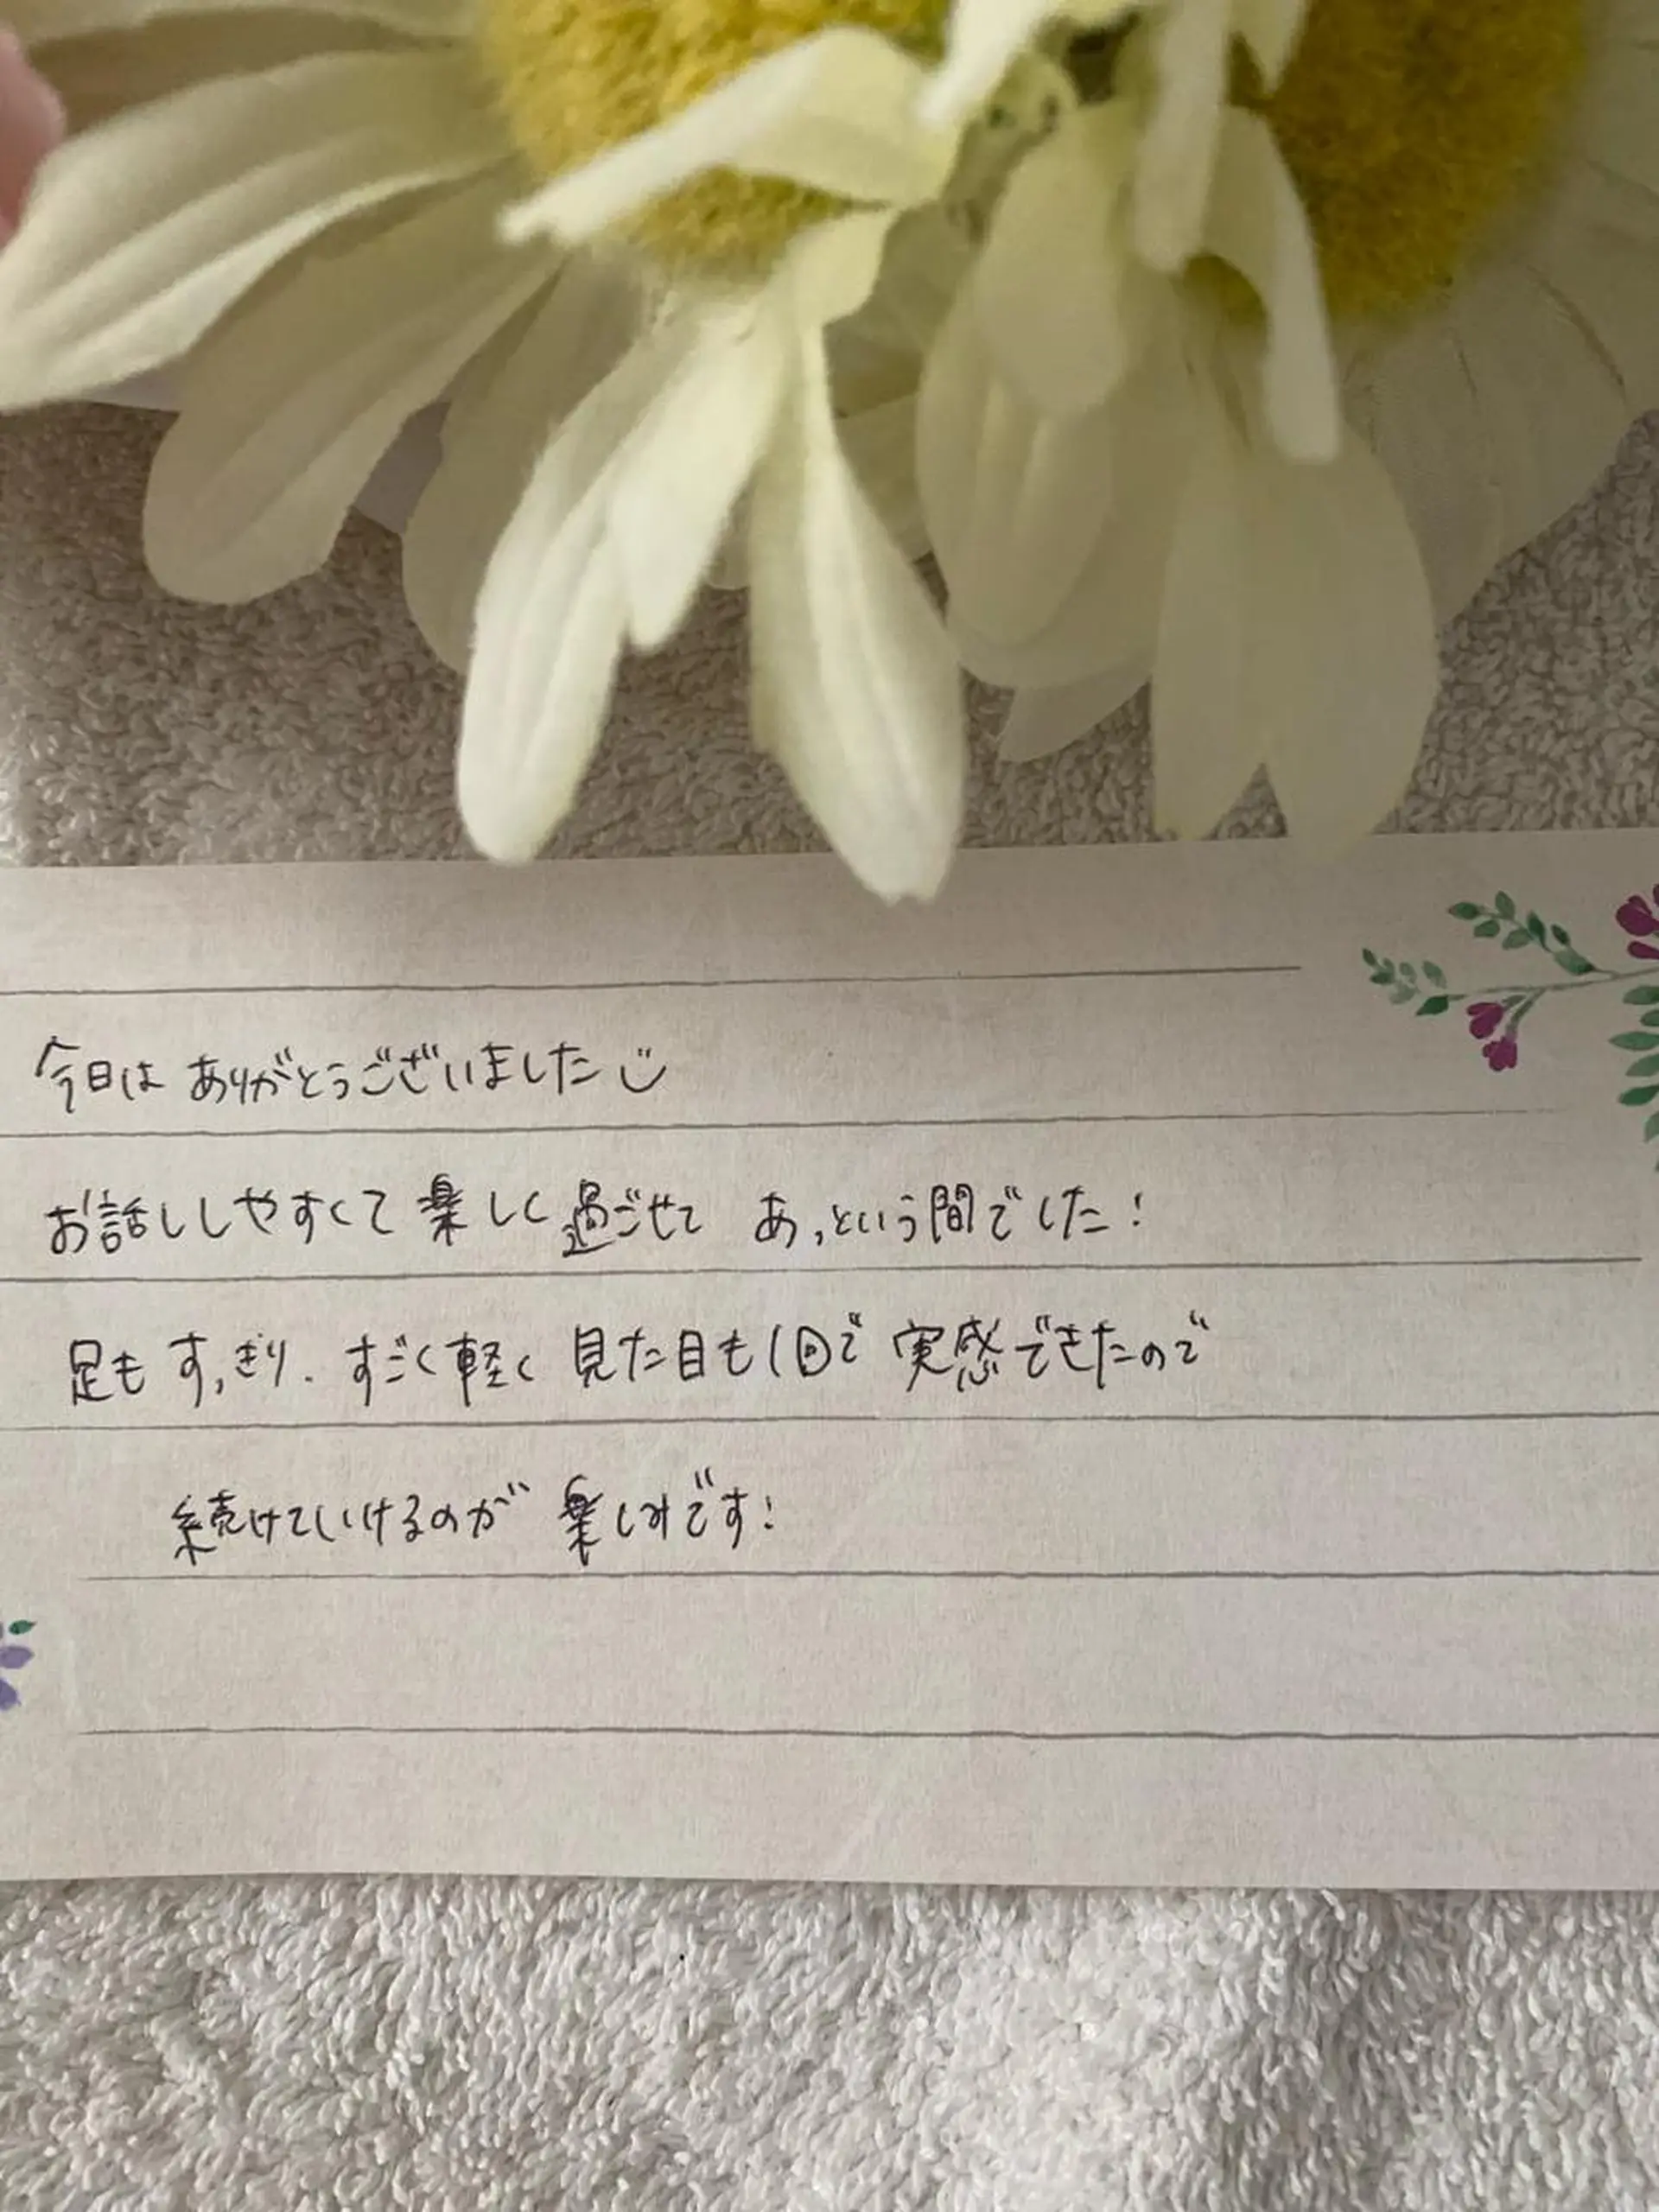 今日は ありがとうございました
お話ししやすくて 楽しく過ごせて あっという間でした!
足も すっきり. すごく軽く 見た目も1回で 実感できたので
続けていけるのが 楽しみです!